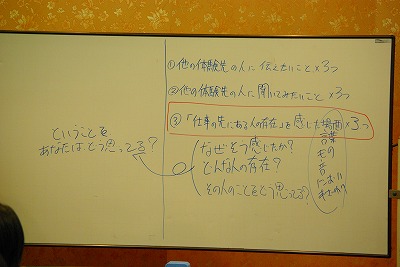 ①他の体験先の人に伝えたいこと×3つ
②他の体験先の人に聞いてみたいこと×3つ
③「仕事の先にある人の存在」を感じた場面×3つ
なぜそう感じたか？
どんな人の存在？
その人のことをどう思ってる？
言葉
もの
音
におい
ということを
あなたはどう思ってる？